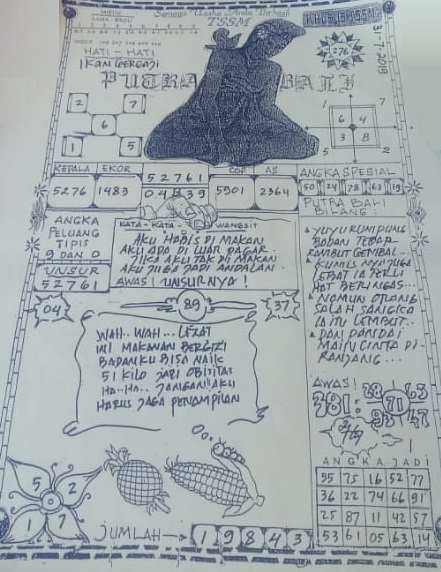 Semoga Usaha Anda Berhasil
TSSM
31-7-2019
276
HATI - HATI
IKAN GERGAJI
PUTRA BALI
2 7
6
1 5
1 5
6 4
3 8
7 2
KEPALA EKOR
5276 1483
52761
04839
COP AS
5301 2364
ANGKA SPESIAL
50 24 78 63 19
PUTRA BALI
BILANG:
ANGKA
PELUANG
TIPIS
9 DAN 0
UNSUR
52761
KATA-KATA WANGSIT
AKU HABIS DI MAKAN
AKU ADA DI LUAR PAGAR
JIKA AKU TAK DI MAKAN
AKU JUGA JADI ANDALAN
AWAS! UNSURNYA!
BADAN TEGAP
RAMBUT GEMBAL
HOT BERINGAS...
NAMUN ORANG
SALAH SANGKA
IA ITU LEMBUT
DAN PANDAI
MAIN CINTA DI-
RANJANG...
04 89 37
WAH.. WAH... LEZAT
INI MAKANAN BERGIZI
BADANKU BISA NAIK
51 KILO JADI OBITITAS
HA..HA.. JANGAN!! AKU
HARUS JAGA PENAMPILAN
AWAS!
381:
28 63
71
93 47
5 2
1 7
JUMLAH → 1 9 8 4 3
ANGKA JADI
95 75 16 52 77
36 22 74 66 91
25 87 11 42 57
53 61 05 63 14